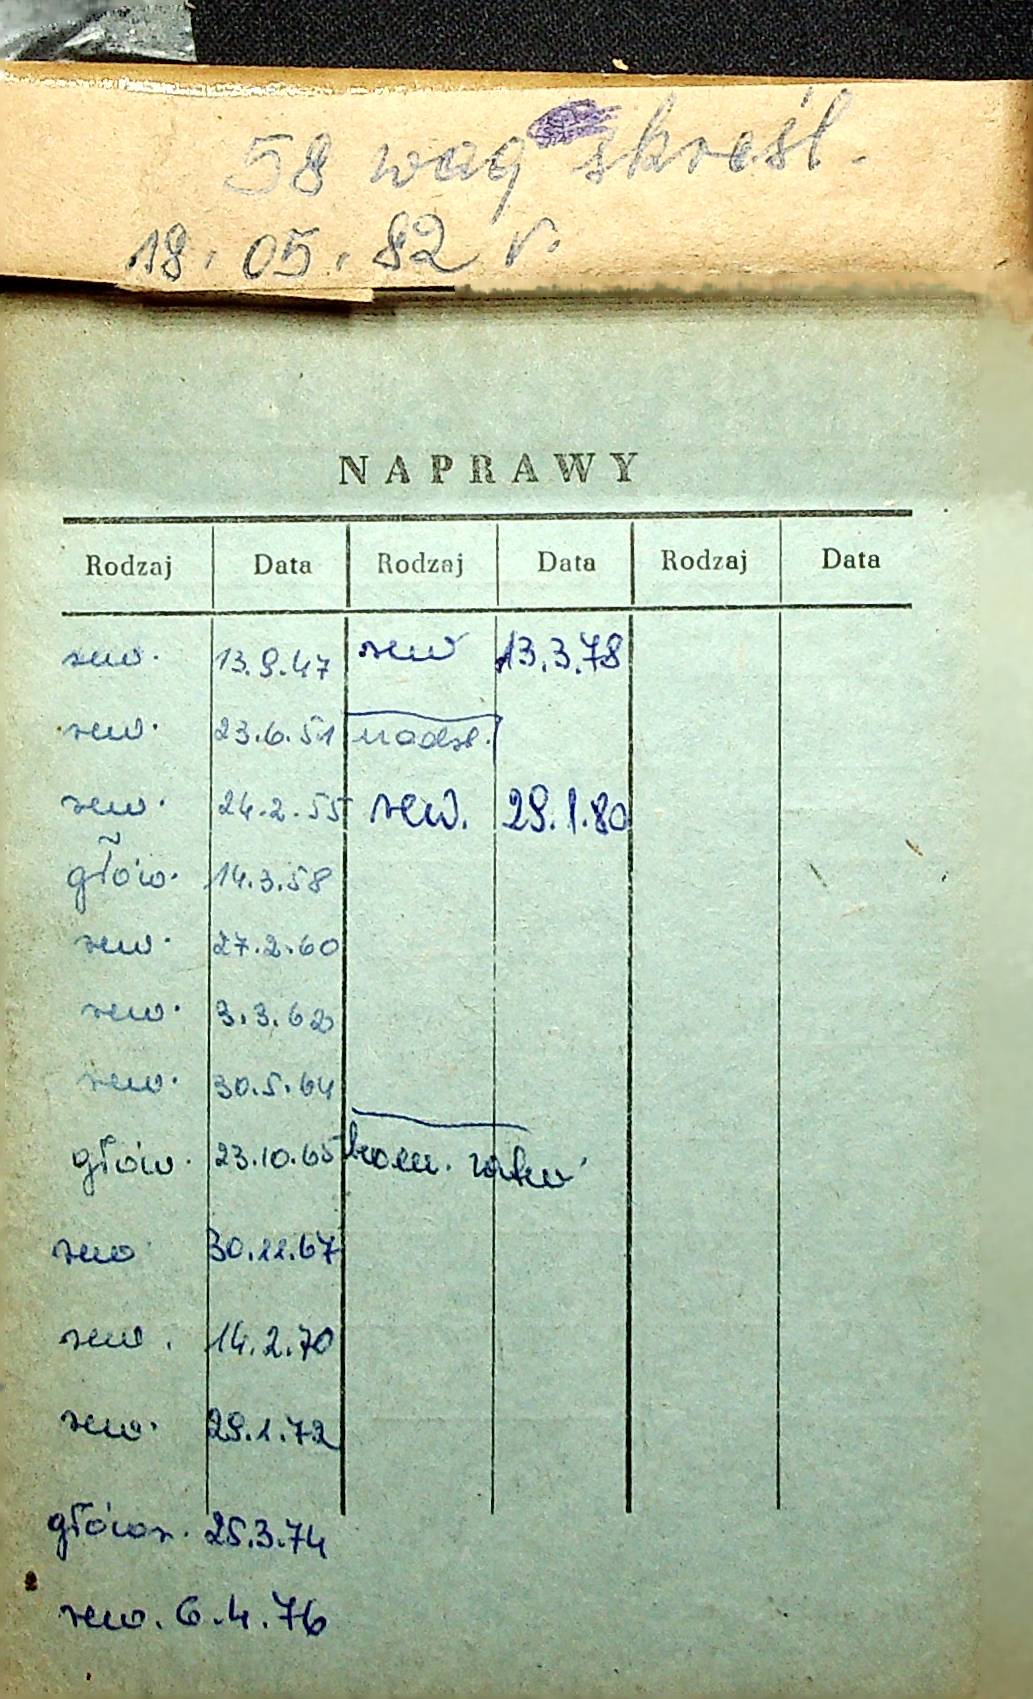 58 wag skreśl.
18.05.82 r.
NAPRAWY
Rodzaj Data Rodzaj Data Rodzaj Data
rew. 13.9.47 rew 13.3.78
rew. 23.6.51 nadzl.
rew. 24.2.55 rew. 29.1.80
głów. 14.3.58
rew. 27.2.60
rew. 3.3.62
rew. 30.5.64
głów. 23.10.65 ham.
rew 30.11.67
rew. 14.2.70
rew. 29.1.72
główn. 25.3.74
rew. 6.4.76